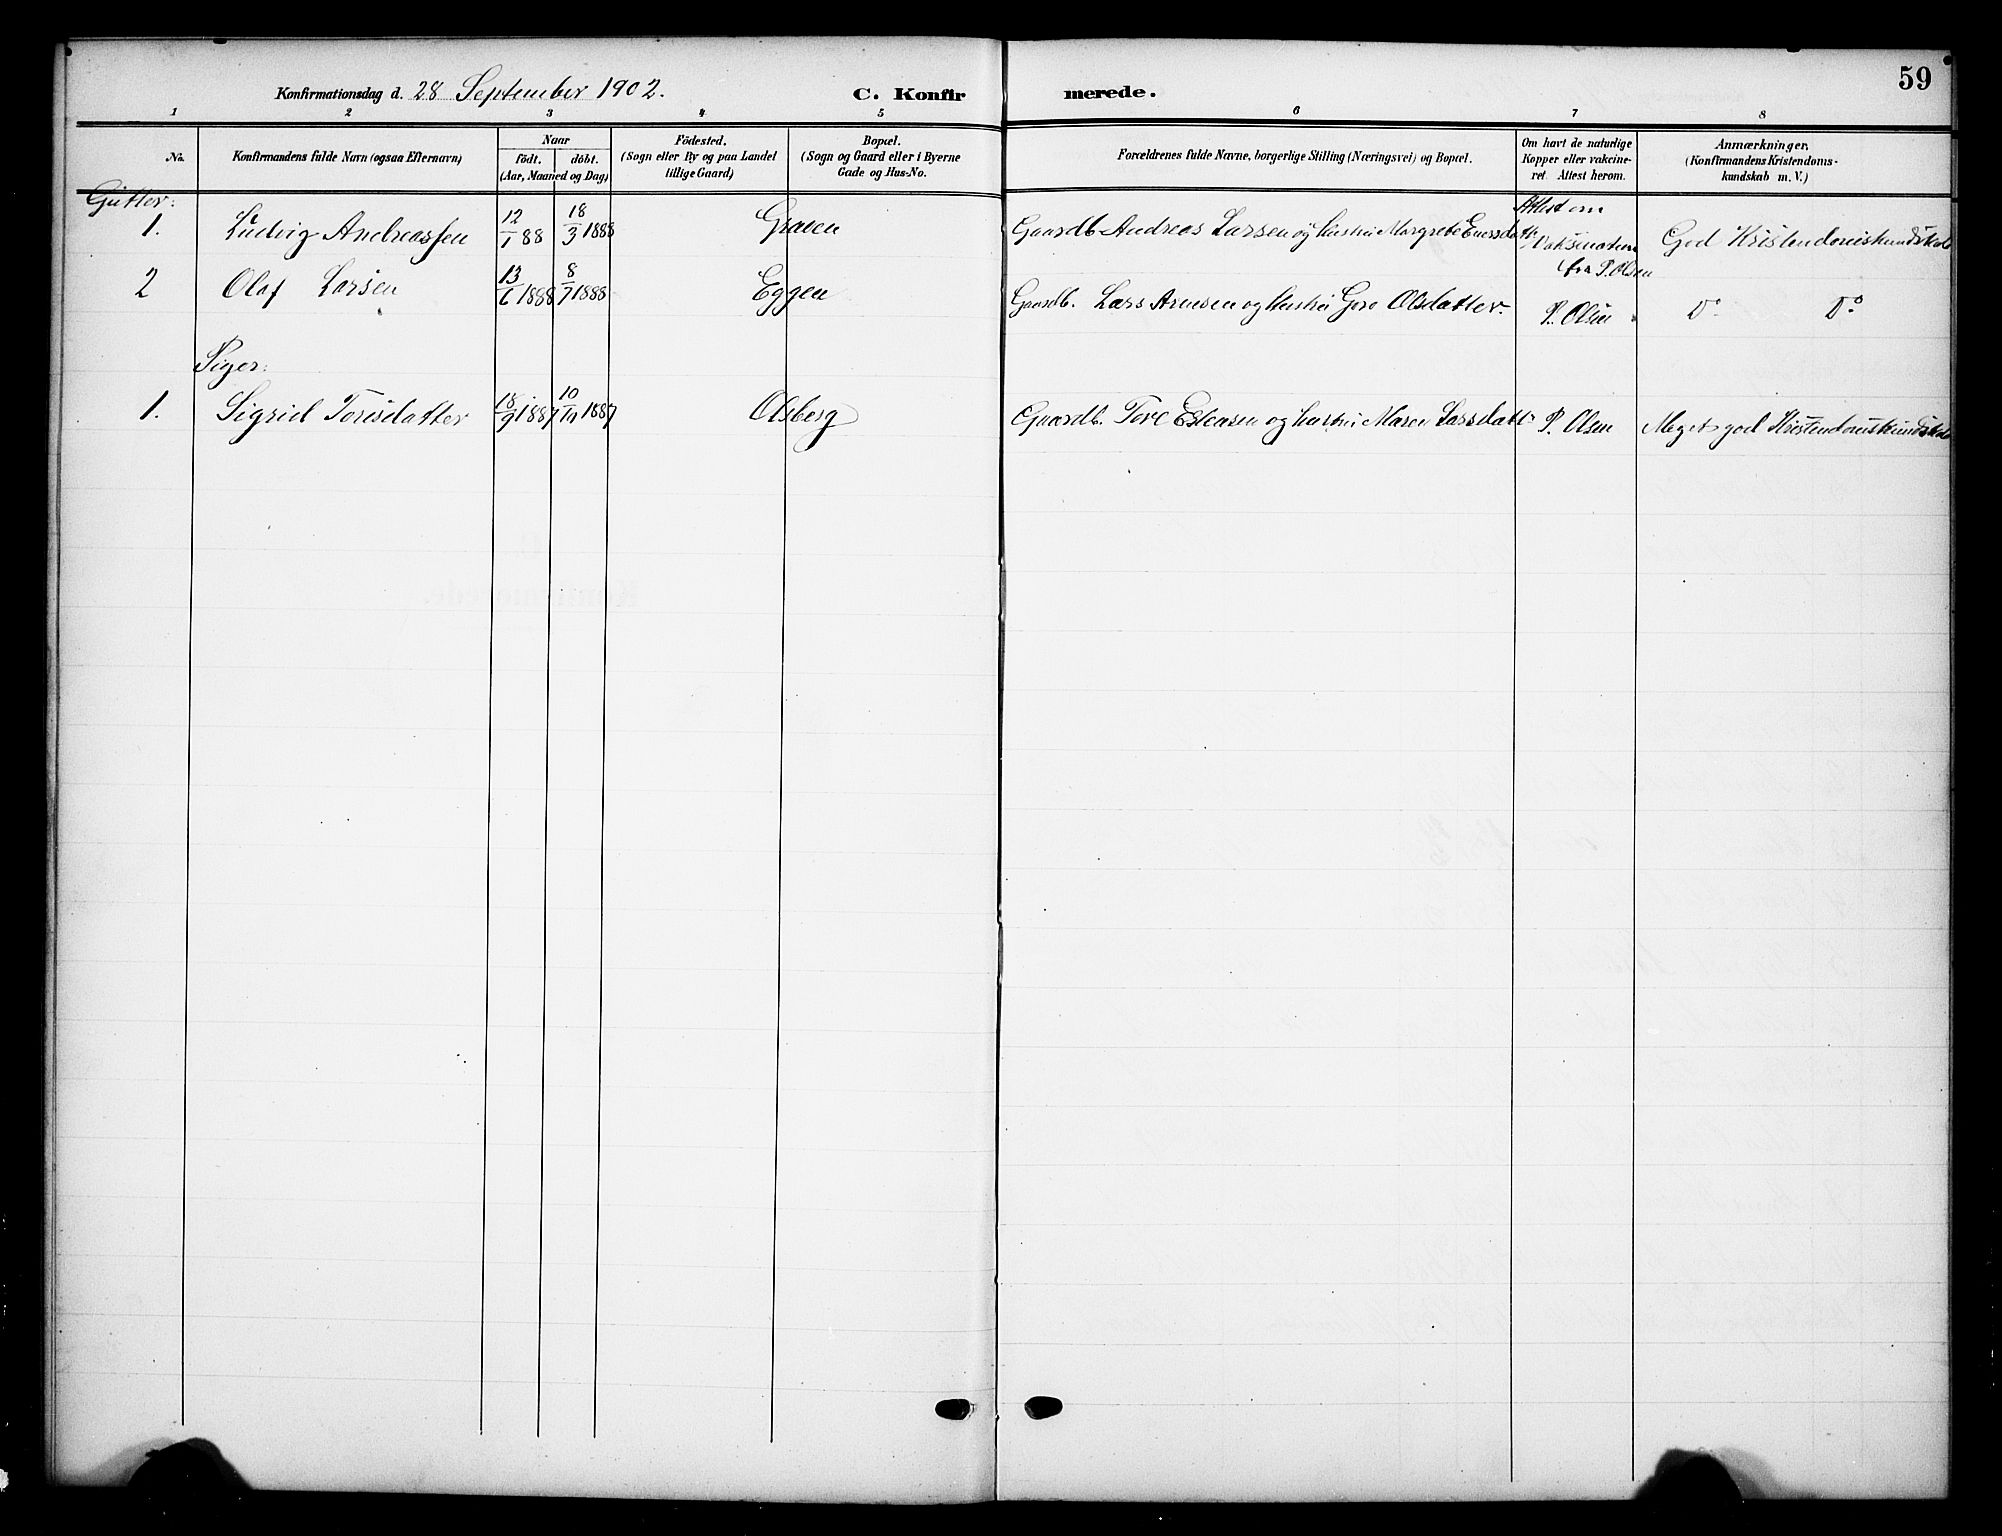 59
Konfirmationsdag d. 28 September 1902. C. Konfirmerede.
1 2 3 4 5 6 7 8
No.
Konfirmandens fulde Navn (ogsaa Efternavn)
Naar
födt. döbt.
(Aar, Maaned og Dag)
Födested.
(Sogn eller By og paa Landet
tillige Gaard)
Bopæl.
(Sogn og Gaard eller i Byerne
Gade og Hus-No.
Forældrenes fulde Navne, borgerlige Stilling (Næringsvei) og Bopæl.
Om havt de naturlige
Kopper eller vakcine-
ret. Attest herom.
Anmærkninger.
(Konfirmandens Kristendoms-
kundskab m. V.)
Gutter:
1. Ludvig Andreassen 12/1 88 18/3 1888 Graven Gaardb. Andreas Larsen og Hustru Margrete Attest om Vaksination fra P. Olsen God Kristendomskundskab
2 Olaf Larsen 13/6 1888 8/7 1888 Eggen Gaardb. Lars Arnesen og Hustru Goro Olsdatter. P. Olsen Do Do
Piger:
1. Sigrid Toresdatter 18/9 1887 10/10 1887 Olsberg Gaardb. Tore Estensen og hustru Maren Larsdatt P. Olsen Meget god Kristendomskundskab